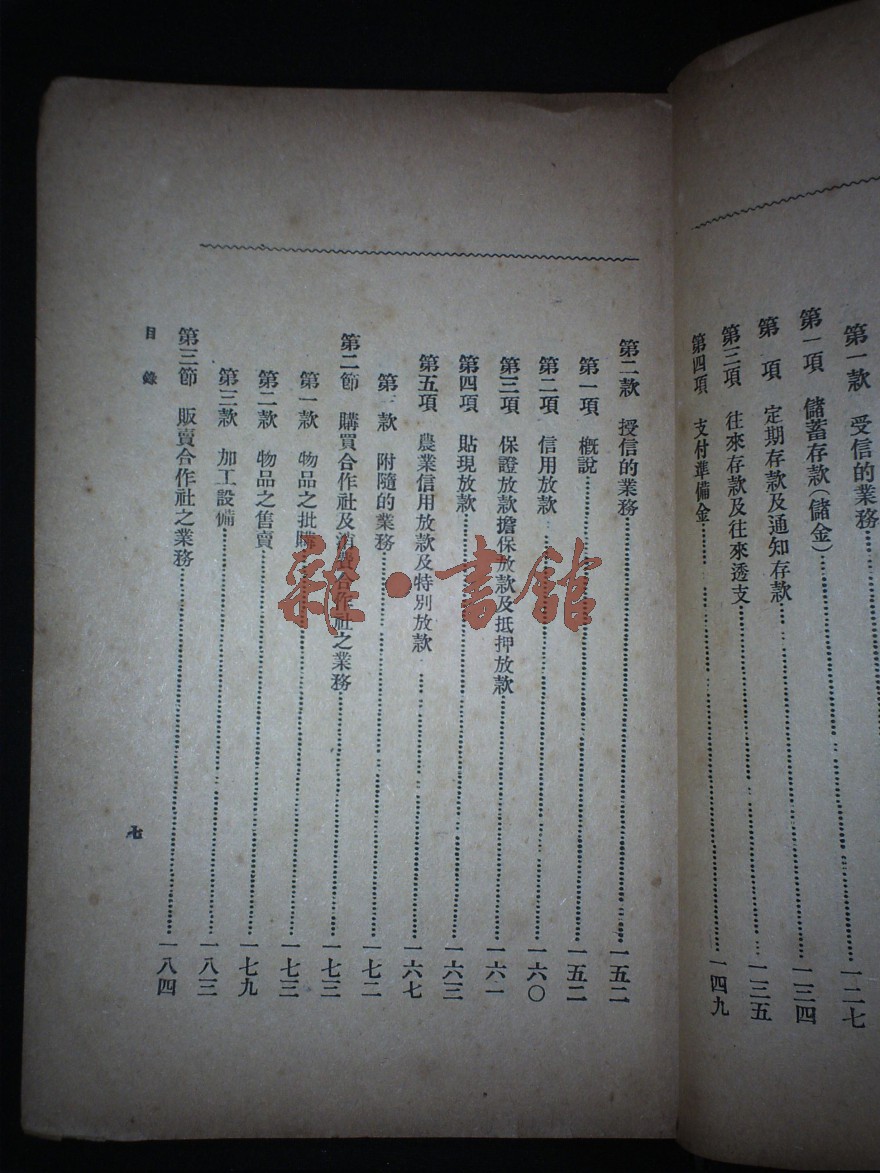 第一款　受信的業務……一二七
第一項　儲蓄存款(儲金)……一三四
第　項　定期存款及通知存款
第三項　往來存款及往來透支……一三五
第四項　支付準備金……一四九
第二款　授信的業務……一五二
第一項　概說……一五二
第二項　信用放款……一六〇
第三項　保證放款擔保放款及抵押放款……一六一
第四項　貼現放款……一六三
第五項　農業信用放款及特別放款……一六七
第　款　附隨的業務……一七二
第二節　購買合作社及消費合作社之業務……一七三
第一款　物品之批購……一七三
第二款　物品之售賣……一七九
第三款　加工設備……一八三
第三節　販賣合作社之業務……一八四
目錄
七
雜·書館